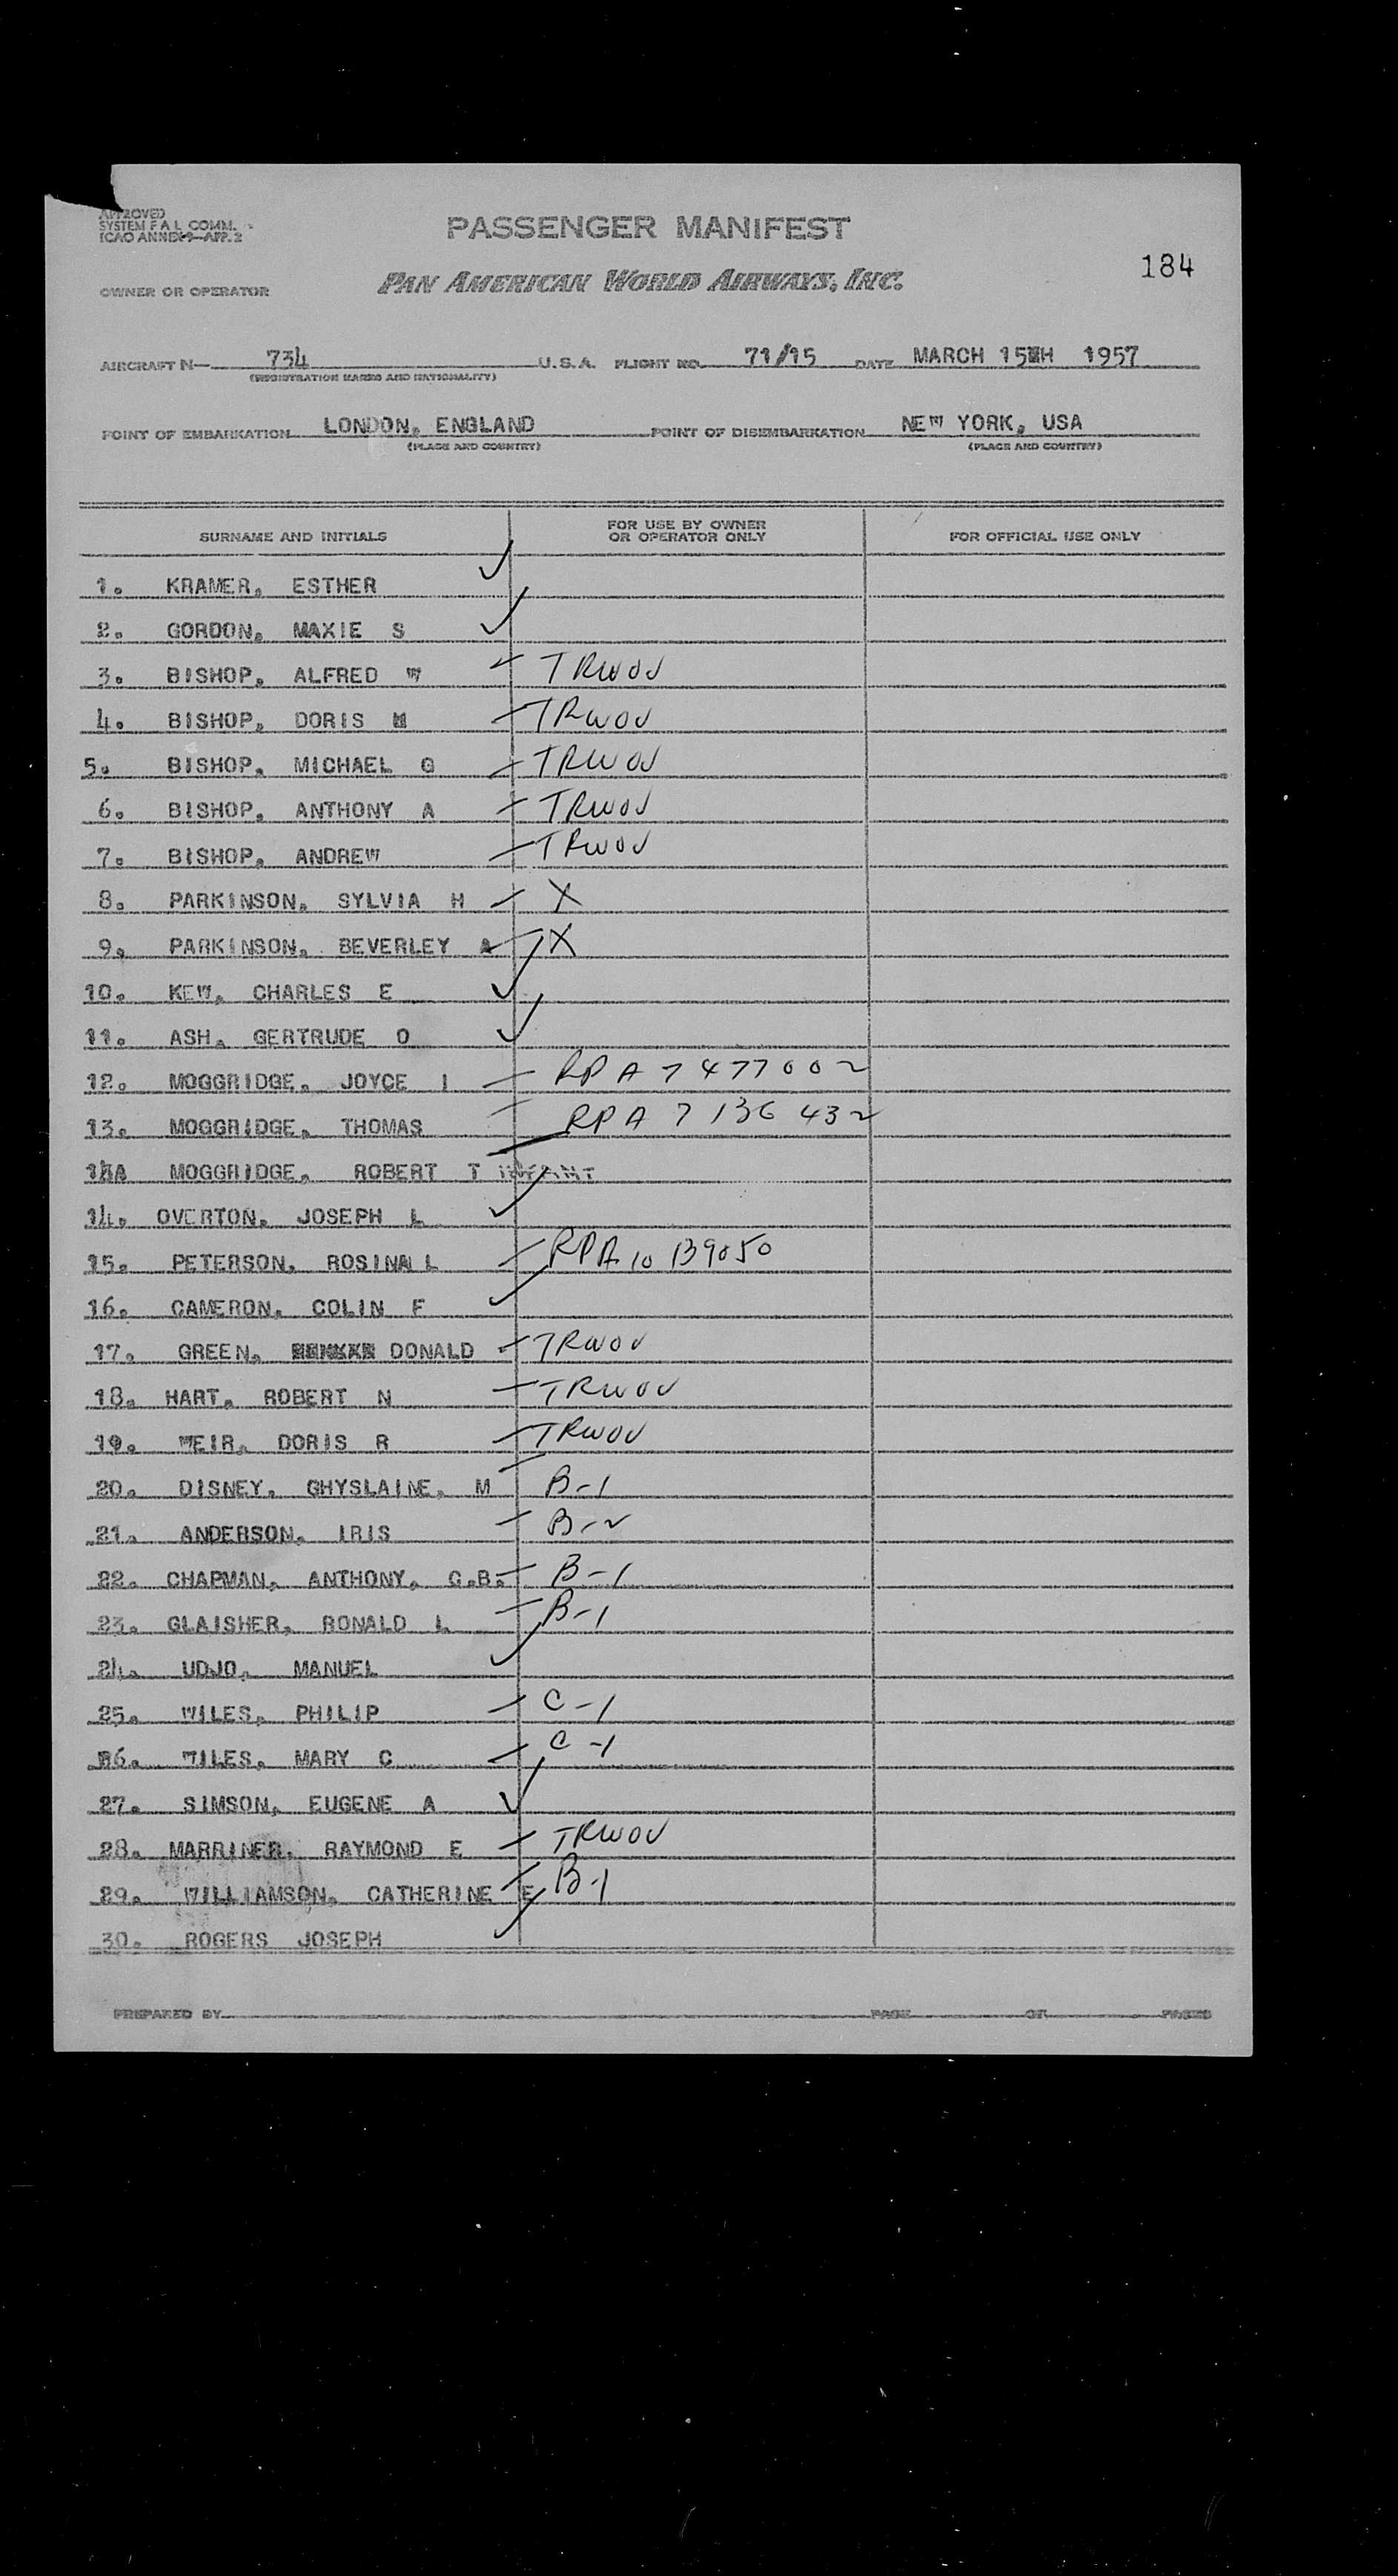 APPROVED
SYSTEM F A L COMM.
ICAO ANNEX 9—APP. 2
PASSENGER MANIFEST
184
OWNER OR OPERATOR
PAN AMERICAN WORLD AIRWAYS, INC.
AIRCRAFT N— 734 U.S.A. FLIGHT NO. 71/15 DATE MARCH 15TH 1957
(REGISTRATION MARKS AND NATIONALITY)
POINT OF EMBARKATION LONDON, ENGLAND POINT OF DISEMBARKATION NEW YORK, USA
(PLACE AND COUNTRY) (PLACE AND COUNTRY)
SURNAME AND INITIALS FOR USE BY OWNER OR OPERATOR ONLY FOR OFFICIAL USE ONLY
1. KRAMER, ESTHER ✓
2. GORDON, MAXIE S ✓
3. BISHOP, ALFRED W TRWOV
4. BISHOP, DORIS M TRWOV
5. BISHOP, MICHAEL G TRWOV
6. BISHOP, ANTHONY A TRWOV
7. BISHOP, ANDREW TRWOV
8. PARKINSON, SYLVIA H X
9. PARKINSON, BEVERLEY A X
10. KEW, CHARLES E ✓
11. ASH, GERTRUDE O ✓
12. MOGGRIDGE, JOYCE I RPA 7 477002
13. MOGGRIDGE, THOMAS RPA 7 136 432
MOGGRIDGE, ROBERT T INFANT
14. OVERTON, JOSEPH L ✓
15. PETERSON, ROSINA L RPA 10 139050
16. CAMERON, COLIN F ✓
17. GREEN, DONALD TRWOV
18. HART, ROBERT N TRWOV
19. WEIR, DORIS R TRWOV
20. DISNEY, GHYSLAINE, M B-1
21. ANDERSON, IRIS B-2
22. CHAPMAN, ANTHONY, G.B. B-1
23. GLAISHER, RONALD L B-1
24. UDJO, MANUEL ✓
25. WILES, PHILIP C-1
26. WILES, MARY C C-1
27. SIMSON, EUGENE A ✓
28. MARRINER, RAYMOND E TRWOV
29. WILLIAMSON, CATHERINE E B-1
30. ROGERS JOSEPH ✓
PREPARED BY PAGE OF PAGES